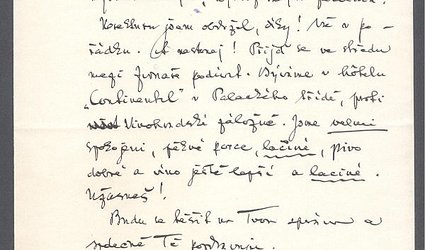 Korekturu jsem obdržel, díky! Vše v po-
řádku. A nastraj! Přijď se ve středu
mezi firnaře podívat. Bývíme v hôtelu
„Continental" v Palackého třídě, proti
Vinohradské záložně. Jsme velmi
spokojeni, pěkné porce, laciné, pivo
dobré a víno ještě lepší a laciné.
Užasneš!
Budu se těšit na Tvou zprávu a
srdečně Tě pozdravuji.